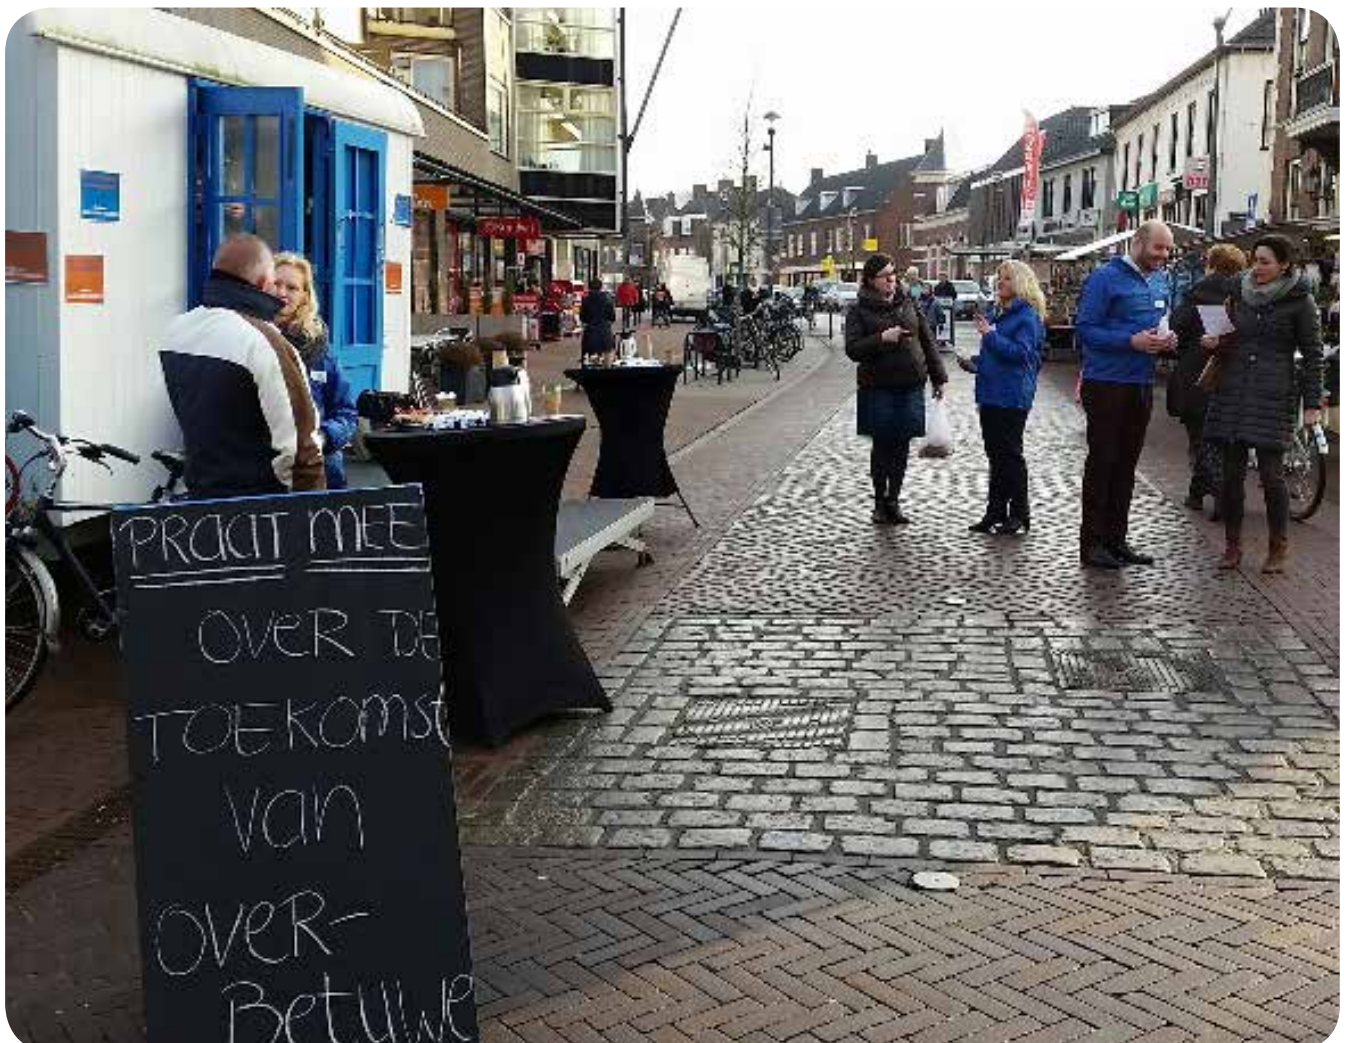 PRAAT MEE
OVER DE
TOEKOMST
van
OVER-
BETUWE